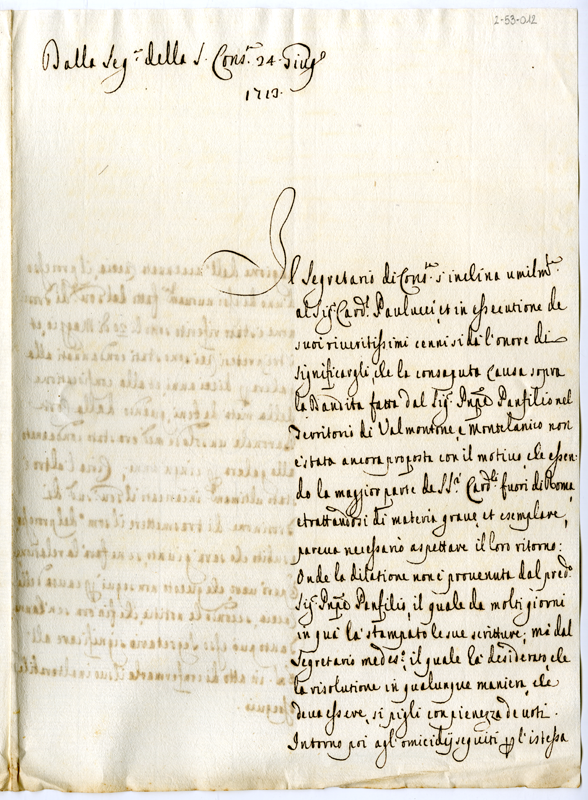 2-53-012
Dalla Seg.ria della S. Cons.ta 24 Giug.o
1713.
Il Segretario di Cons.ta s'inclina umilm.te
al Sig. Card. Paulucci, et in essecutione de
suoi riveritissimi cenni si dà l'onore di
significargli, che la consaputa Causa sopra
la Bandita fatta dal Sig. Pn̄pe Panfilio nel
Territorio di Valmontone, e Montelanico non
è stata ancora proposta con il motivo, che essen-
do la maggior parte de SS.ri Card.li fuori di Roma
e trattandosi di materia grave, et esemplare,
pareva necessario aspettare il loro ritorno:
Onde la dilatione non è provenuta dal pred.o
Sig. Pn̄pe Panfilio, il quale da molti giorni
in quà hà stampato le sue scritture; mà dal
Segretario medes.o, il quale hà desiderato, che
la risolutione in qualunque maniera, che
deva essere, si pigli con pienezza de voti.
Intorno poi agl'omicidij seguiti p l'istessa